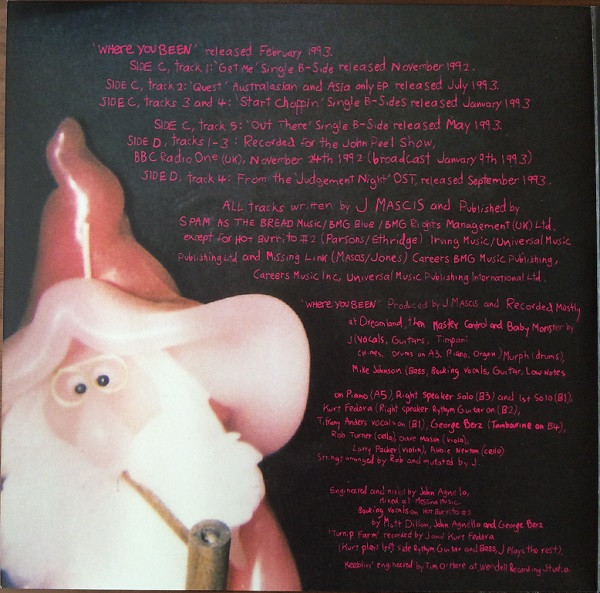 'WHERE YOU BEEN' released February 1993.
SIDE C, track 1: 'Get Me' Single B-Side released November 1992.
SIDE C, track 2: 'Quest' Australasian and Asia only EP released July 1993.
SIDE C, tracks 3 and 4: 'Start Choppin' Single B-Sides released January 1993
SIDE C, track 5: 'Out There' Single B-Side released May 1993.
SIDE D, tracks 1-3: Recorded for the John Peel Show,
BBC Radio One (UK), November 24th 1992 (broadcast January 9th 1993)
SIDE D, track 4: From the 'Judgement Night' OST, released September 1993.
ALL tracks written by J MASCIS and Published by
SPAM AS THE BREAD Music/BMG Blue/BMG Rights Management (UK) Ltd.
except for Hot Burrito #2 (Parsons/Ethridge) Irving Music/Universal Music
Publishing Ltd and Missing Link (Mascis/Jones) Careers BMG Music Publishing,
Careers Music Inc, Universal Music Publishing International Ltd.
'WHERE YOU BEEN' Produced by J MASCIS and Recorded Mostly
at Dreamland, then Master Control and Baby Monster by
J (Vocals, Guitars, Timpani
Chimes, Drums on A3, Piano, Organ) Murph (drums),
Mike Johnson (Bass, Backing Vocals, Guitar, Low Notes
on Piano (A5), Right Speaker Solo (B3) and 1st Solo (B1),
Kurt Fedora (Right speaker Rythym Guitar on (B2),
Tiffany Anders vocals on (B1), George Berz (Tambourine on B4),
Rob Turner (cello), Dave Mason (viola),
Larry Packer (violin), Abbie Newton (cello)
Strings arranged by Rob and mutated by J.
Engineered and mixed by John Agnello,
Mixed at Messina Music
Backing vocals on Hot Burrito #2
by Matt Dillon, John Agnello and George Berz
'Turnip Farm' recorded by J and Kurt Fedora
(Kurt plays left side Rythym Guitar and Bass, J Plays the rest).
Keeblin' engineered by Tim O'Heir at Wendell Recording Studio.